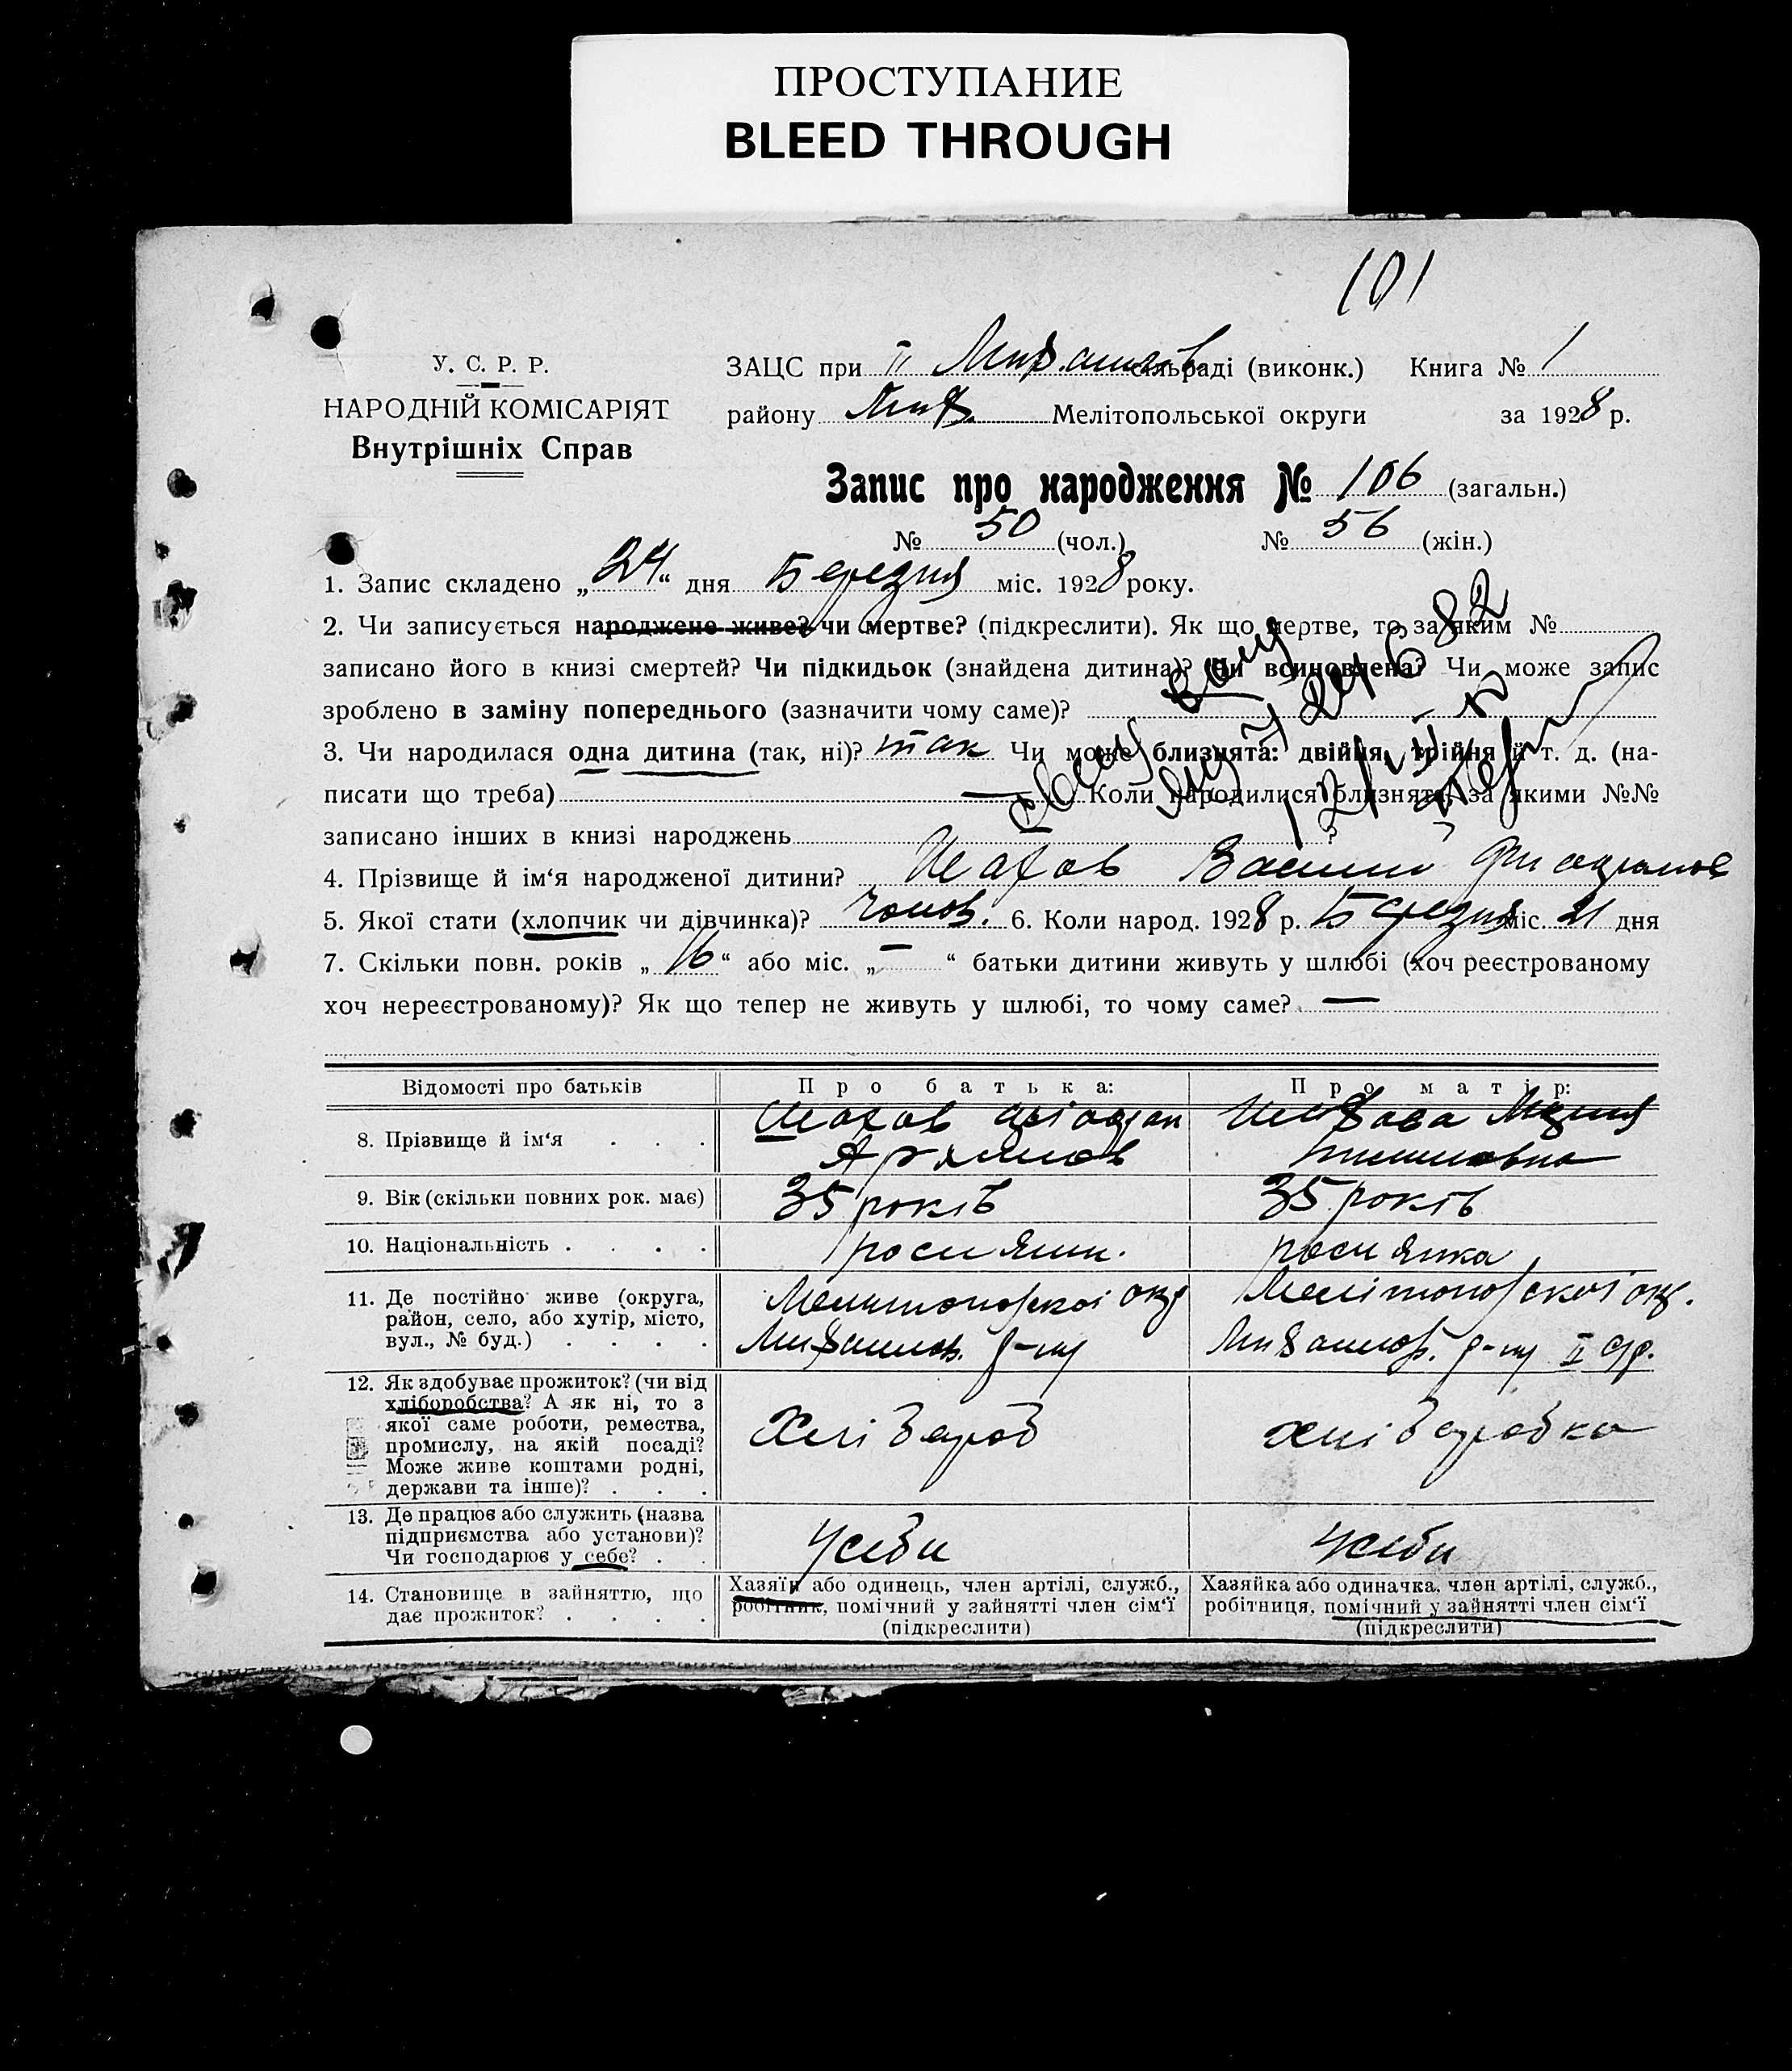 ПРОСТУПАНИЕ
BLEED THROUGH
101
У. С. Р. Р.
НАРОДНІЙ КОМІСАРІЯТ
Внутрішніх Справ
ЗАЦС при II сільраді (виконк.) Книга № 1
району Мелітопольської округи за 1928 р.
Запис про народження № 106 (загальн.)
№ 50 (чол.) № 56 (жін.)
1. Запис складено „24“ дня Березня міс. 1928 року.
2. Чи записується народжене живе? чи мертве? (підкреслити). Як що мертве, то за яким №
записано його в книзі смертей? Чи підкидьок (знайдена дитина)? Чи всиновлена? Чи може запис
зроблено в заміну попереднього (зазначити чому саме)?
3. Чи народилася одна дитина (так, ні)? так Чи може близнята: двійня, трійня й т. д. (на-
писати що треба) — Коли народилися близнята, за якими №№
записано інших в книзі народжень ?
4. Прізвище й ім‘я народженої дитини?
5. Якої стати (хлопчик чи дівчинка)? 6. Коли народ. 1928 р. Березня міс. 21 дня
7. Скільки повн. років „16“ або міс. „—“ батьки дитини живуть у шлюбі (хоч реєстрованому
хоч нереєстрованому)? Як що тепер не живуть у шлюбі, то чому саме? —
Відомості про батьків Про батька: Про матір:
8. Прізвище й ім‘я . . .
9. Вік (скільки повних рок. має) 35 років 35 років
10. Національність . . . . росиянин. росиянка
11. Де постійно живе (округа,
район, село, або хутір, місто,
вул., № буд.) . . . .
12. Як здобуває прожиток? (чи від
хліборобства? А як ні, то з
якої саме роботи, ремества,
промислу, на якій посаді?
Може живе коштами родні,
держави та інше)? . . .
Хлібороб хліборобка
13. Де працює або служить (назва
підприємства або установи)?
Чи господарює у себе? . .
У себи У себи
14. Становище в зайняттю, що
дає прожиток? . . . .
Хазяїн або одинець, член артілі, служб.,
робітник, помічний у зайнятті член сім‘ї
(підкреслити)
Хазяйка або одиначка, член артілі, служб.,
робітниця, помічний у зайнятті член сім‘ї
(підкреслити)